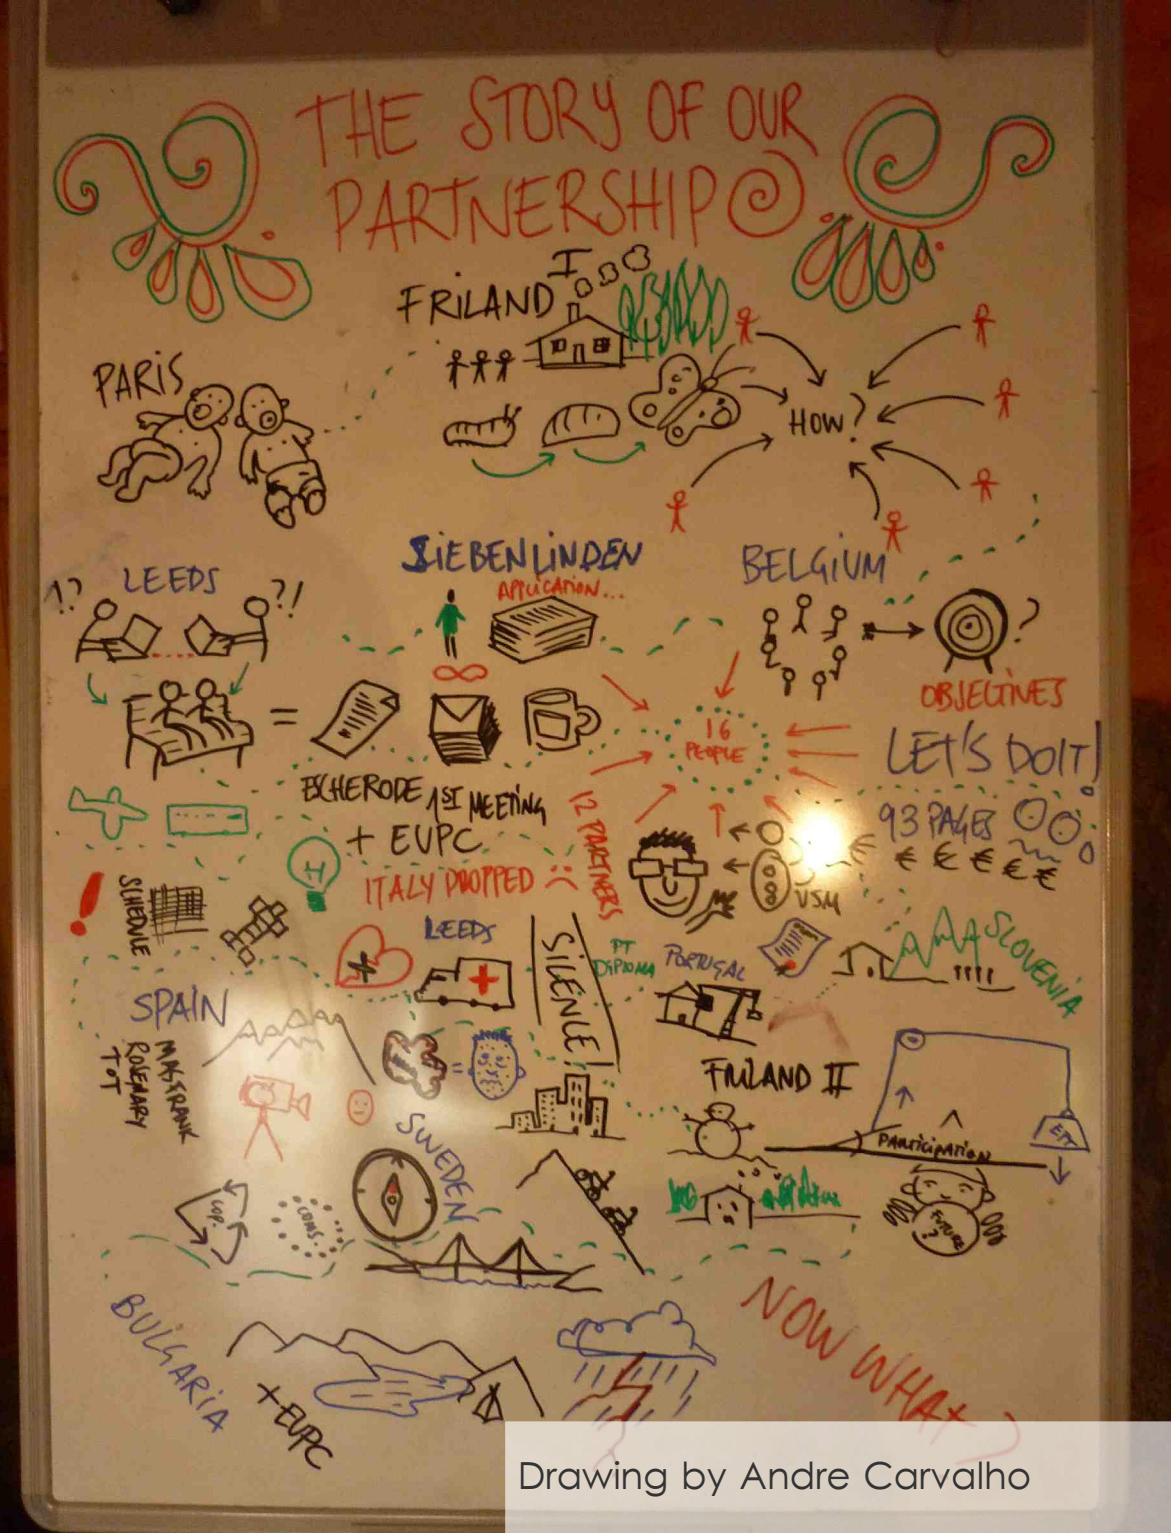 THE STORY OF OUR
PARTNERSHIP
FRILAND I
PARIS
HOW?
LEEDS
!?
?!
SIEBENLINDEN
APPLICATION...
BELGIUM
?
OBJECTIVES
=
16
PEOPLE
LET'S DO IT!
ESCHERODE 1ST MEETING
+ EUPC
ITALY DROPPED :(
12 PARTNERS
93 PAGES
€ € € € € €
VSM
!
SCHEDULE
LEEDS
SILENCE!
PT
DIPLOMA
PORTUGAL
SLOVENIA
SPAIN
MASFRANK
ROSEMARY
TOT
=
FRILAND II
PARTICIPATION
SWEDEN
COP.
COMS.
FUTURE
?
BULGARIA
+ EUPC
NOW WHAT?
Drawing by Andre Carvalho